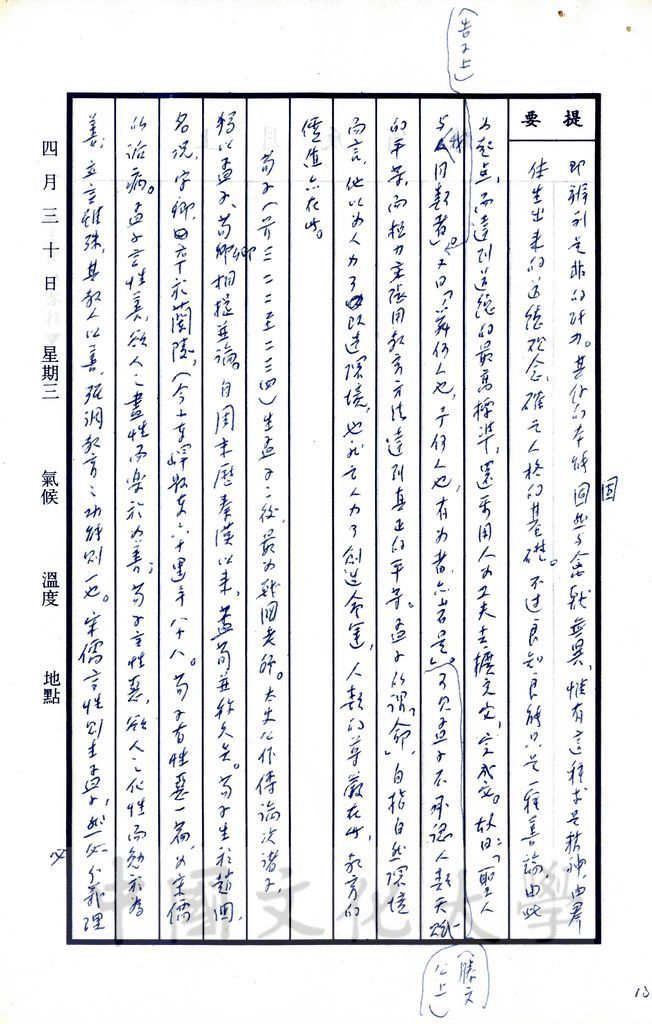 提要
即辨別是非的能力。其他的本能固然與禽獸無異,惟有這種求是精神,由果
任生出來的道德觀念,確是人格的基礎。不過良知良能只是一種善端,由此
為起點,而達到道德的最高標準,還要用人為工夫去擴充它,完成它。故曰:「聖人
與我同類者」。又曰「舜何人也,予何人也,有為者,亦若是」。可見孟子不承認人類天賦
的平等,而極力主張用教育方法達到真正的平等。孟子所謂「命」,自指自然環境
而言,他以為人力可以改造環境,也就是人力可創造命運,人類的尊嚴在此,教育的
價值亦在此。
荀子(前三二二至二三四)生孟子之後,最為戰國老師。太史公作傳論次諸子,
獨以孟子、荀卿相提並論。自周末歷秦漢以來,孟荀並稱久矣。荀子生於趙國,
名況,字卿,卒於蘭陵,(今山東嶧縣東六十里)年八十八。荀子有性惡一篇,為宋儒
所詬病。孟子言性善,欲人之盡性而樂於為善;荀子言性惡,欲人之化性而勉於為
善;立言雖殊,其教人以善,強調教育之功能則一也。宋儒言性則主孟子,然必分義理
固
(告子上)
(滕文公上)
四月三十日 星期三 氣候 溫度 地點
中國文化大學
13